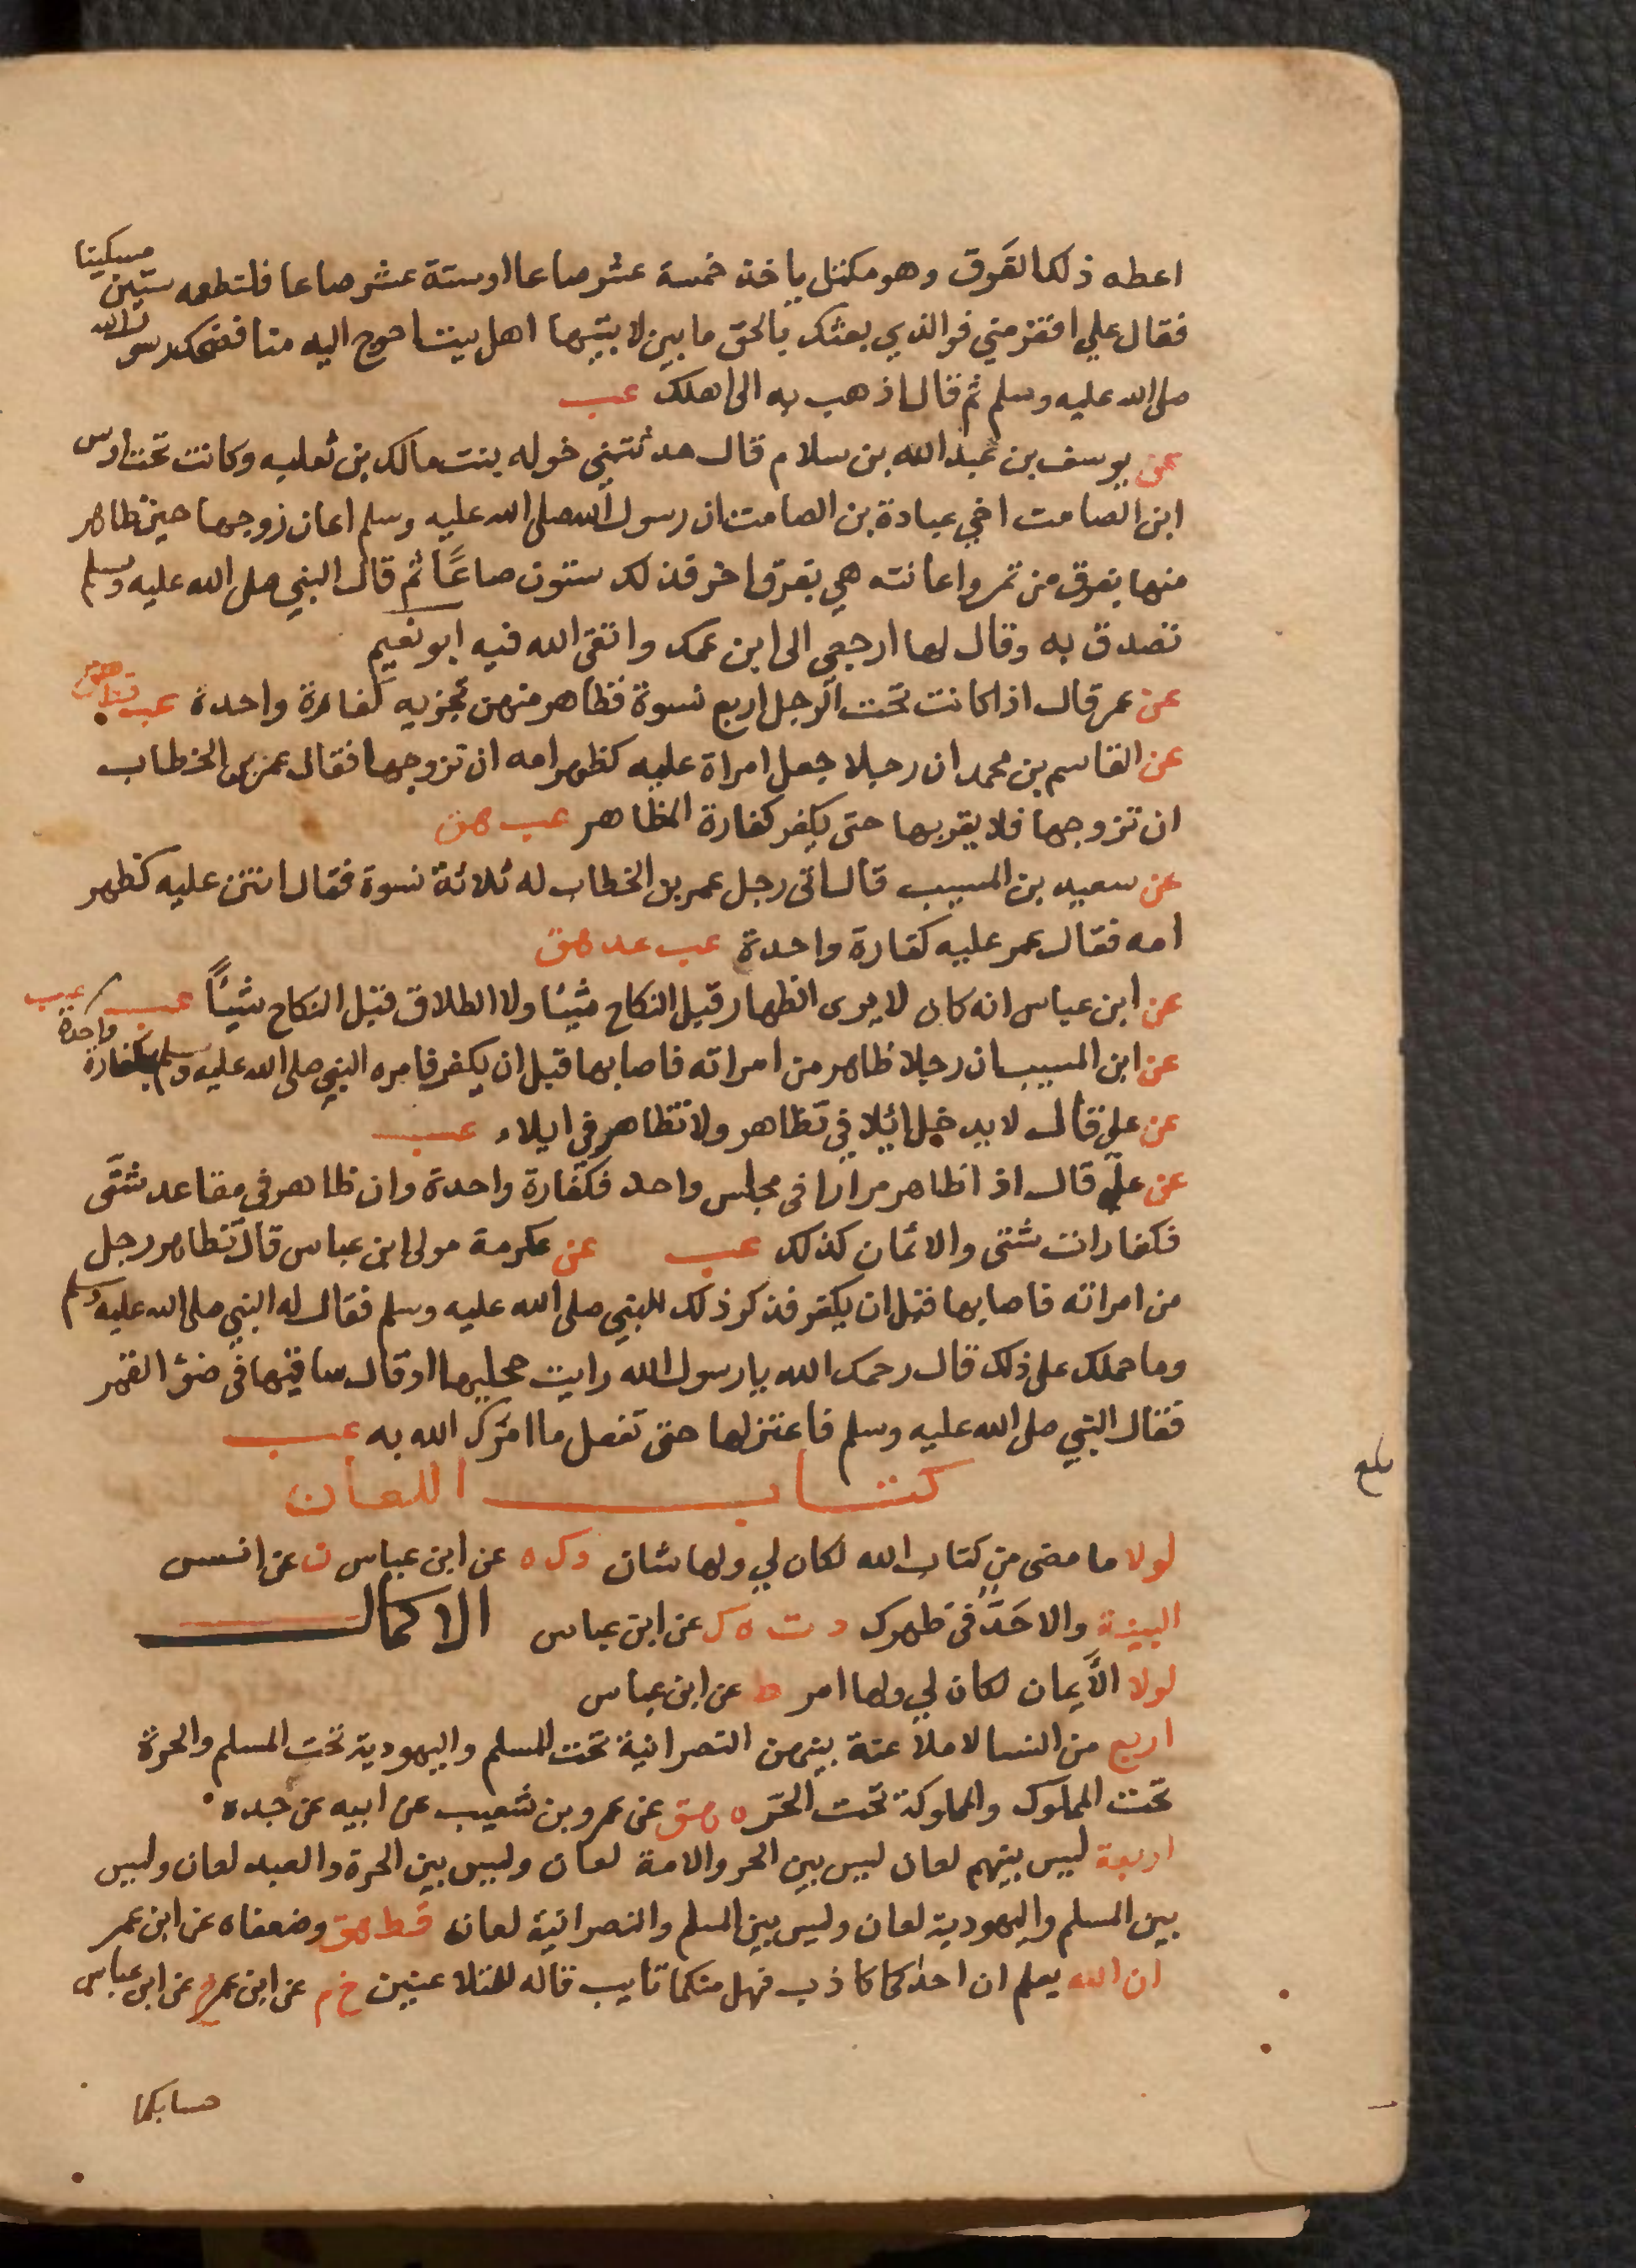 اعطه ذلك العَرق وهو مكتل ياخذ خمسة عشر صاعا او ستة عشر صاعا فلتطعمه ستين مسكينا
فقال علي افقر مني فو الذي بعثك بالحق ما بين لابتيها اهل بيت احوج اليه منا فضحك رسول الله
صلى الله عليه وسلم ثم قال اذهب به الى اهلك عب
عن يوسف بن عبد الله بن سلام قال حدثتني خوله بنت مالك بن ثعلبه وكانت تحت اوس
ابن الصامت اخي عبادة بن الصامت ان رسول الله صلى الله عليه وسلم اعان زوجها حين ظاهر
منها بعرق من تمر واعانته هي بعرق اخر فذلك ستون صاعًا ثم قال النبي صلى الله عليه وسلم
تصدق به وقال لها ارجعي الى ابن عمك واتقى الله فيه ابو نعيم
عن عمر قال اذا كانت تحت الرجل اربع نسوة فظاهر منهن تجزيه كفارة واحدة عب قط هق
عن القاسم بن محمد ان رجلا جعل امراة عليه كظهر امه ان تزوجها فقال عمر بن الخطاب
ان تزوجها فلا يقربها حتى يكفر كفارة المظاهر عب هق
عن سعيد بن المسيب قال اتى رجل عمر بن الخطاب له ثلاثة نسوة فقال انتن عليه كظهر
امه فقال عمر عليه كفارة واحدة عب عد هق
عن ابن عباس انه كان لا يرى الظهار قبل النكاح شيئا ولا الطلاق قبل النكاح شيئًا عب
عن ابن المسيب ان رجلا ظاهر من امراته فاصابها قبل ان يكفر فامره النبي صلى الله عليه وسلم بكفارة واحدة عب
عن علي قال لا يدخل ائيلا في تظاهر ولا تظاهر في ايلاء عب
عن علي قال اذا ظاهر مرارا في مجلس واحد فكفارة واحدة وان ظاهر في مقاعد شتَّى
فكفارات شتى والائمان كذلك عب عن عكرمة مولى ابن عباس قال تظاهر رجل
من امراته فاصابها قبل ان يكفر فذكر ذلك للنبي صلى الله عليه وسلم فقال له النبي صلى الله عليه وسلم
وما حملك على ذلك قال رحمك الله يا رسول الله رايت حجليها او قال ساقيها في ضؤ القمر
فقال النبي صلى الله عليه وسلم فاعتزلها حتى تفعل ما امرك الله به عب
كتاب اللعان
بلغ
لولا ما مضى من كتاب الله لكان لي ولها شان د ك ه عن ابن عباس ن عن انس
البينة والا حَدٌّ في ظهرك د ت ه ك عن ابن عباس الاكمال
لولا الأيمان لكان لي ولها امر ط عن ابن عباس
اربع من النسا لا ملاعنة بينهن النصرانية تحت المسلم واليهودية تحت المسلم والحرة
تحت المملوك والمملوكة تحت الحر ه هق عن عمرو بن شعيب عن ابيه عن جده
اربعة ليس بينهم لعان ليس بين الحر والامة لعان وليس بين الحرة والعبد لعان وليس
بين المسلم واليهودية لعان وليس بين المسلم والنصرانية لعان قط هق وضعفاه عن ابن عمر
ان الله يعلم ان احدكما كاذب فهل منكما تايب قاله للمتلاعنين خ م عن ابن عمر خ عن ابن عباس
حسابكما